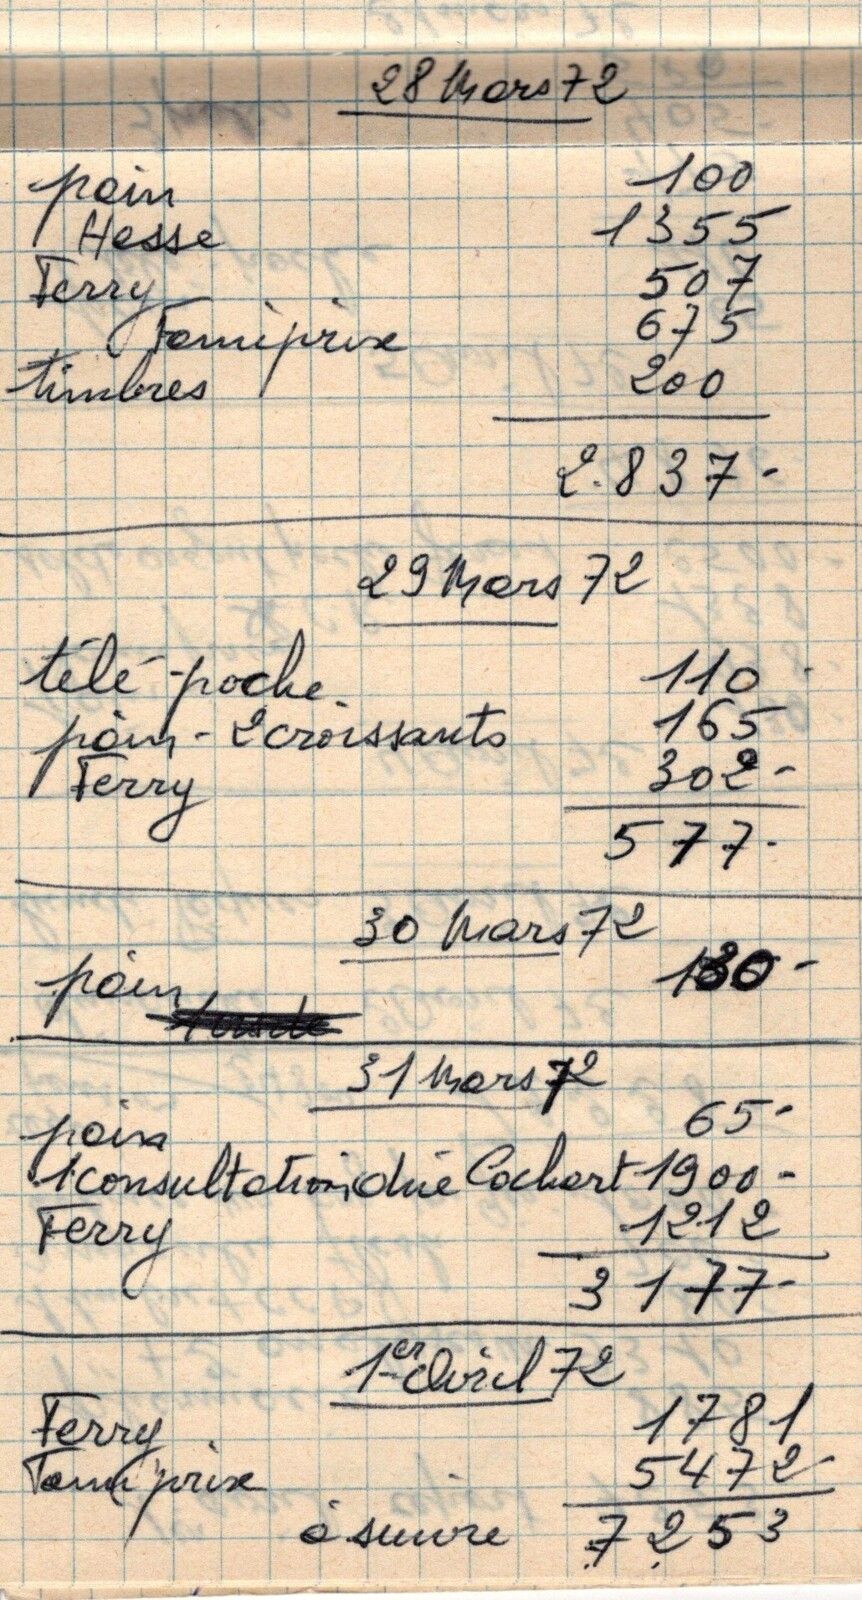 28 Mars 72
pain 100
Hesse 1355
Ferry 507
Famiprix 675
timbres 200
2.837-
29 Mars 72
télé-poche 110
pain - 2 croissants 165
Ferry 302-
577-
30 Mars 72
pain 130-
31 Mars 72
pain 65-
1 consultation, due Cochart 1900-
Ferry 1212
3177-
1er Avril 72
Ferry 1781
Famiprix 5472-
à suivre 7253